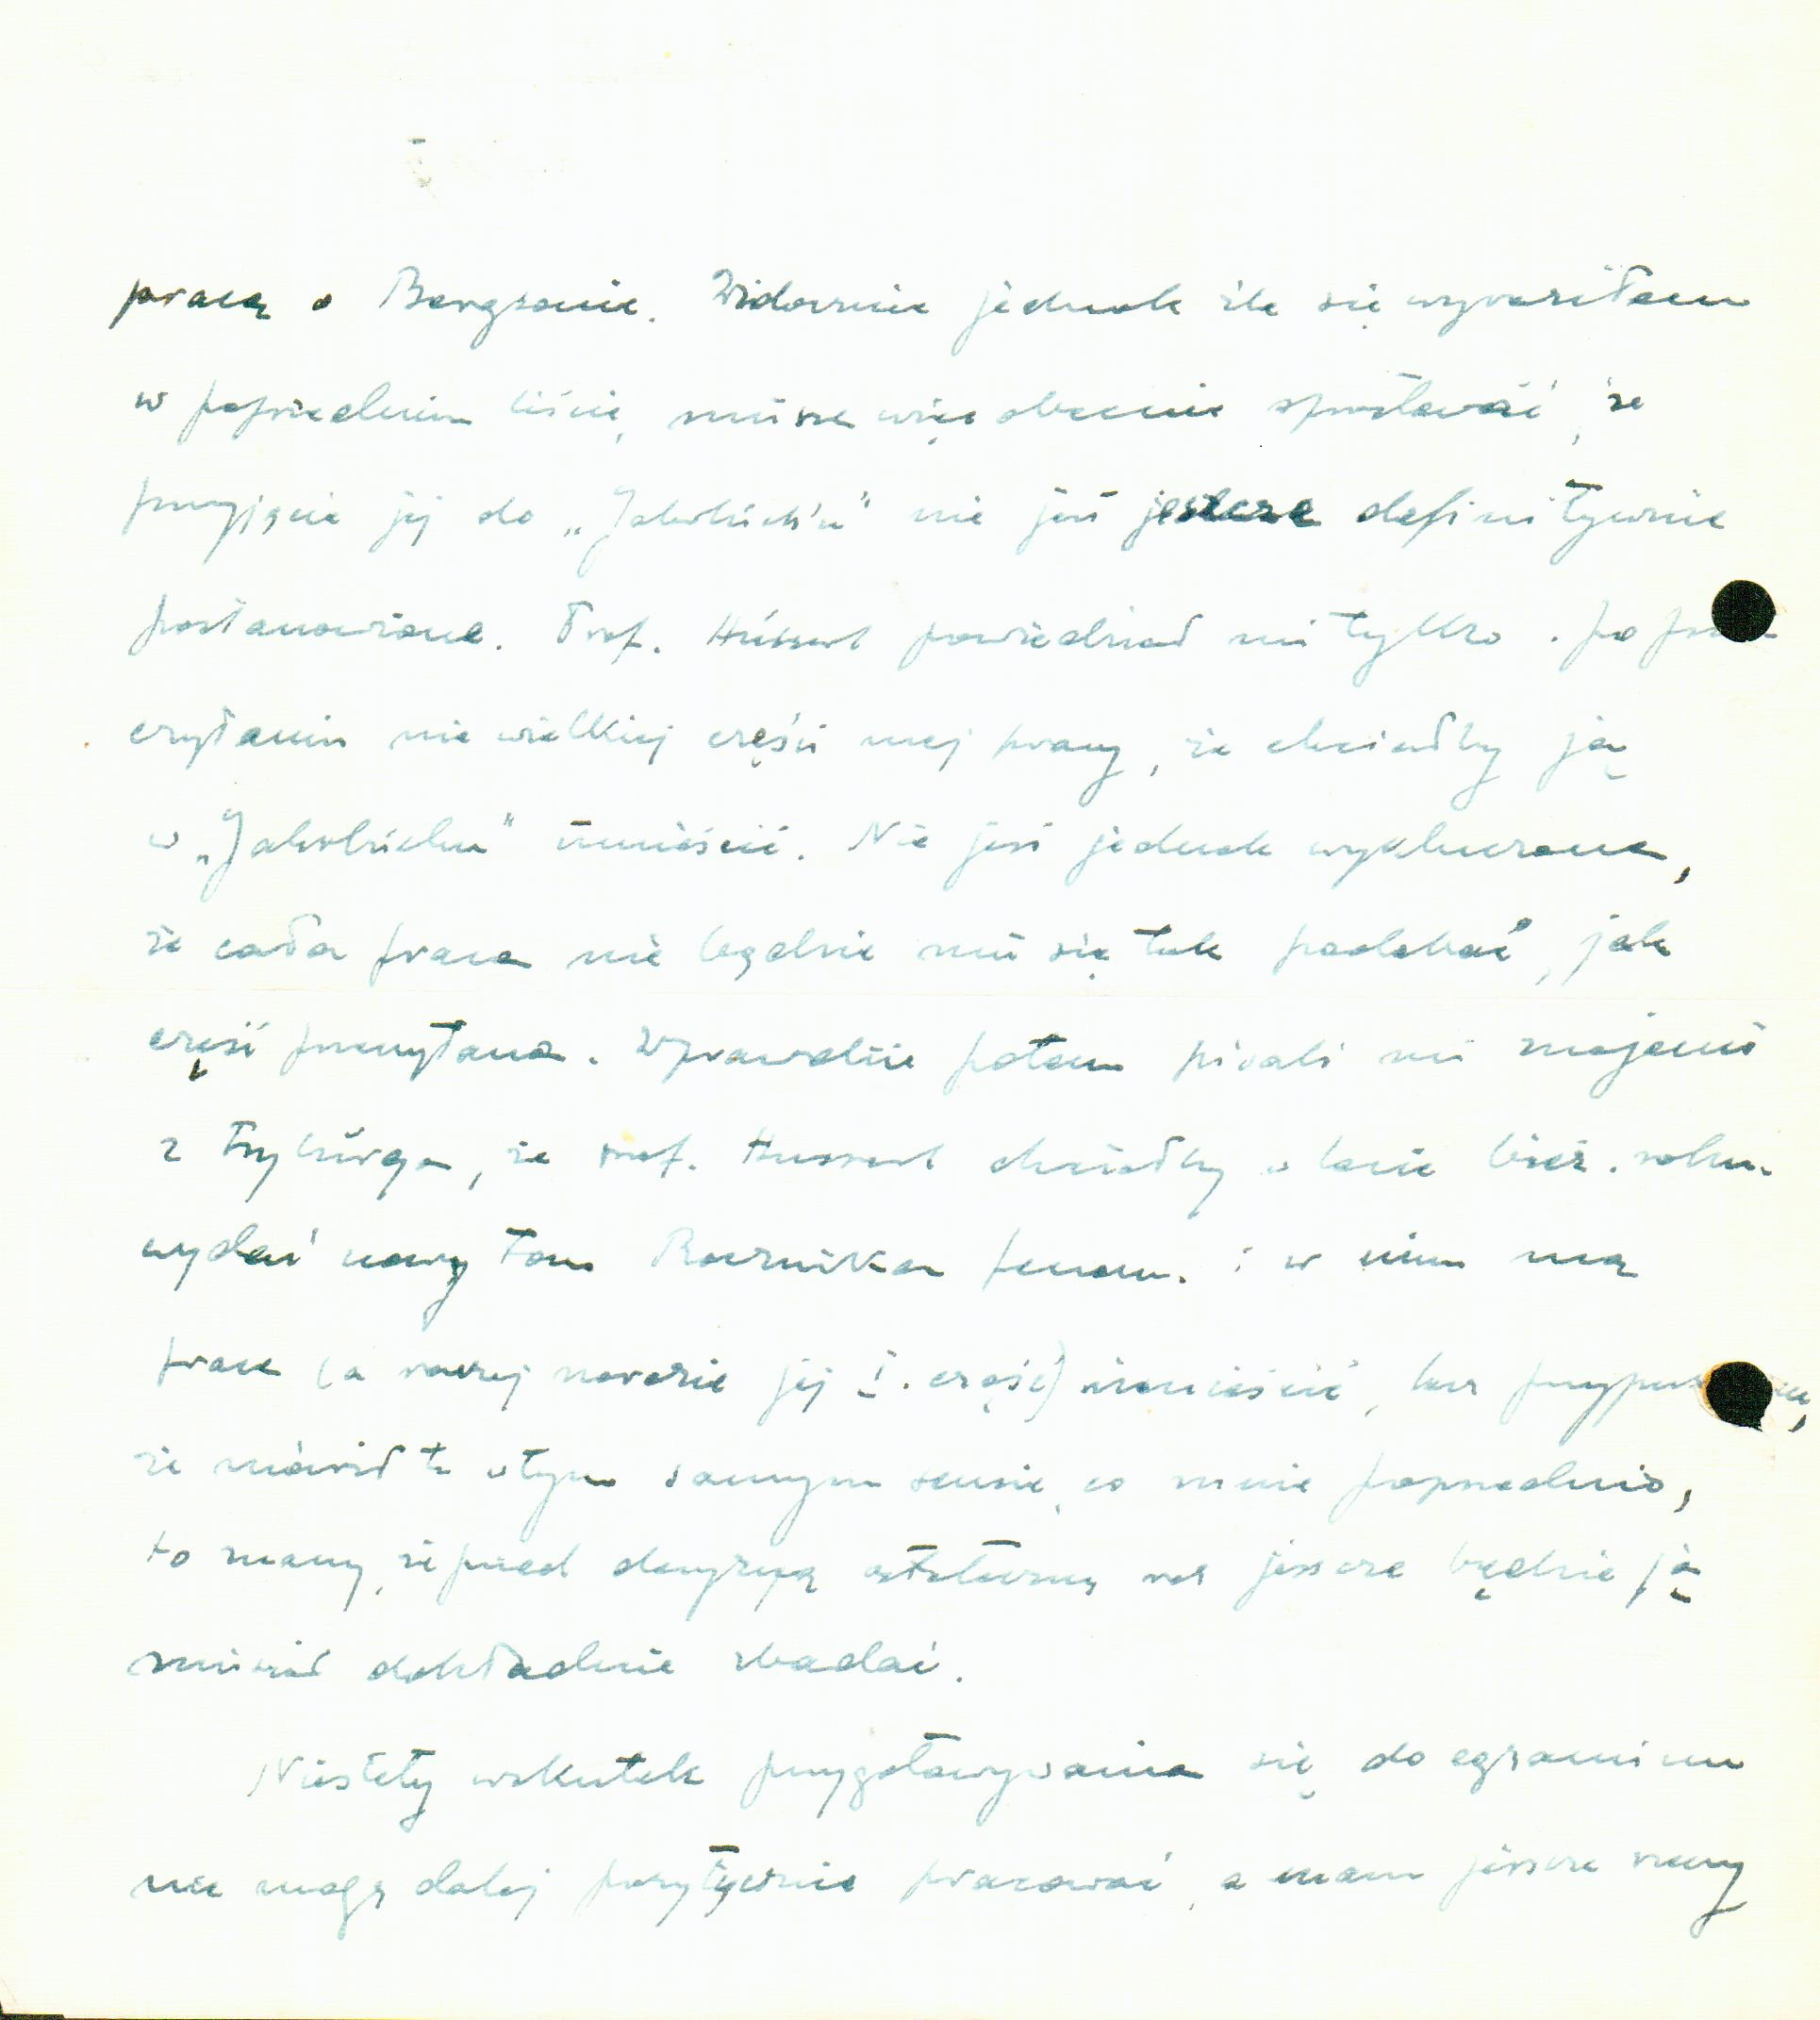 pracą o Bergsonie. Widocznie jednak źle się wyraziłem
w poprzednim liście, muszę więc obecnie sprostować, że
przyjęcie jej do „Jahrbuch'u" nie jest jeszcze definitywnie
postanowione. Prof. Husserl powiedział mi tylko po prze-
czytaniu niewielkiej części mej pracy, że chciałby ją
w „Jahrbuchu" umieścić. Nie jest jednak wykluczone,
że cała praca nie będzie mu się tak podobać, jak
część przeczytana. Wprawdzie potem pisali mi znajomi
z Fryburga, że prof. Husserl chciałby w lecie bież. roku
wydać nowy tom Rocznika fenom. i w nim mą
pracę (a raczej narazie jej I. część) umieścić, lecz przypuszczam,
że mówił to w tym samym sensie, co mnie poprzednio,
to znaczy, że przed decyzją ostateczną raz jeszcze będzie ją
musiał dokładnie zbadać.
Niestety wskutek przygotowywania się do egzaminu
nie mogę dalej pozytywnie pracować, a mam jeszcze